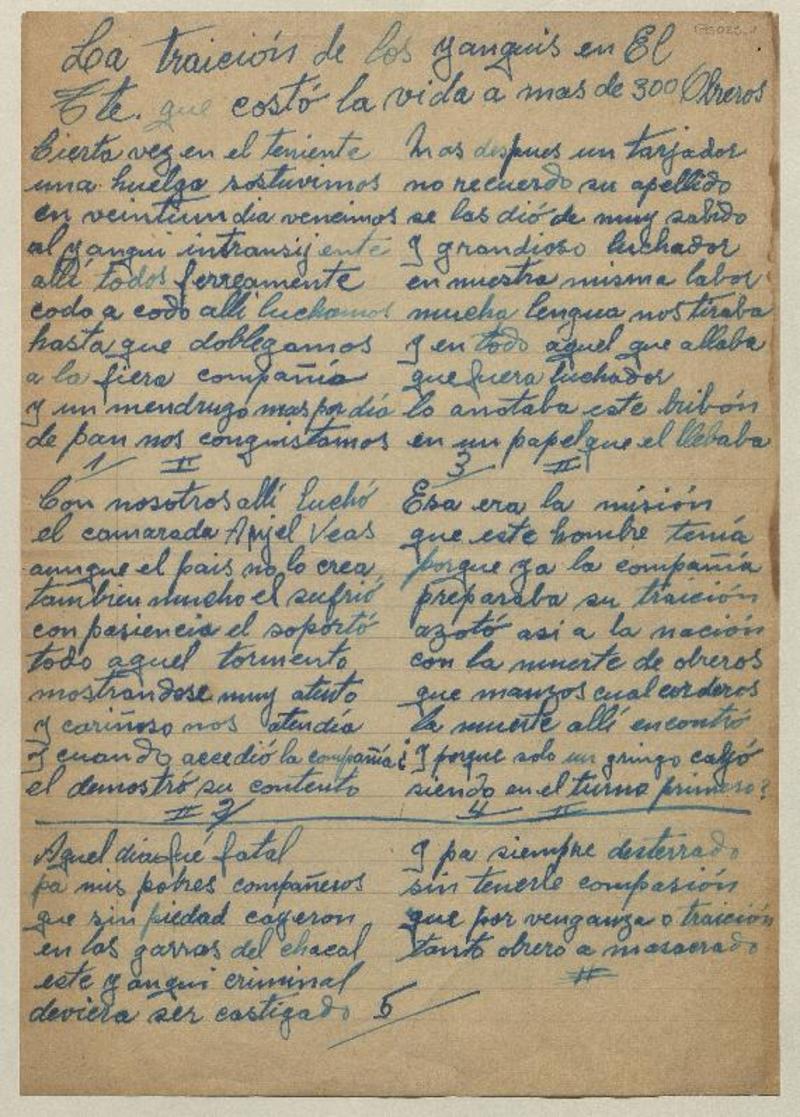 La traición de los yanquis en El
Tte. que costó la vida a mas de 300 Obreros
Cierta vez en el teniente
una huelga sostuvimos
en veintiun dia vencimos
al yanqui intransijente
allí todos ferreamente
codo a codo allí luchamos
hasta que doblegamos
a la fiera compañia
y un mendrugo mas por dia
de pan nos conquistamos
1 II
Con nosotros allí luchó
el camarada Anjel Veas
aunque el pais no lo crea
tambien mucho el sufrió
con pasiencia el soportó
todo aquel tormento
mostrandose muy atento
y cariñoso nos atendía
y cuando accedió la compañia
el demostró su contento
II 2
Mas despues un tarjador
no recuerdo su apellido
se las dió de muy sabido
y grandioso luchador
en nuestra misma labor
mucha lengua nos tiraba
y en todo aquel que allaba
que fuera luchador
lo anotaba este bribón
en un papel que el llebaba
3 II
Esa era la misión
que este hombre tenía
porque ya la compañia
preparaba su traición
azotó asi a la nación
con la muerte de obreros
que manzos cual corderos
la muerte allí encontró
¿Y porque solo un gringo calló
siendo en el turno primero?
4 II
Aquel dia fué fatal
pa mis pobres compañeros
que sin piedad cayeron
en las garras del chacal
este yanqui criminal
deviera ser castigado 5
Y pa siempre desterrado
sin tenerle compasión
que por venganza o traición
tanto obrero a masacrado